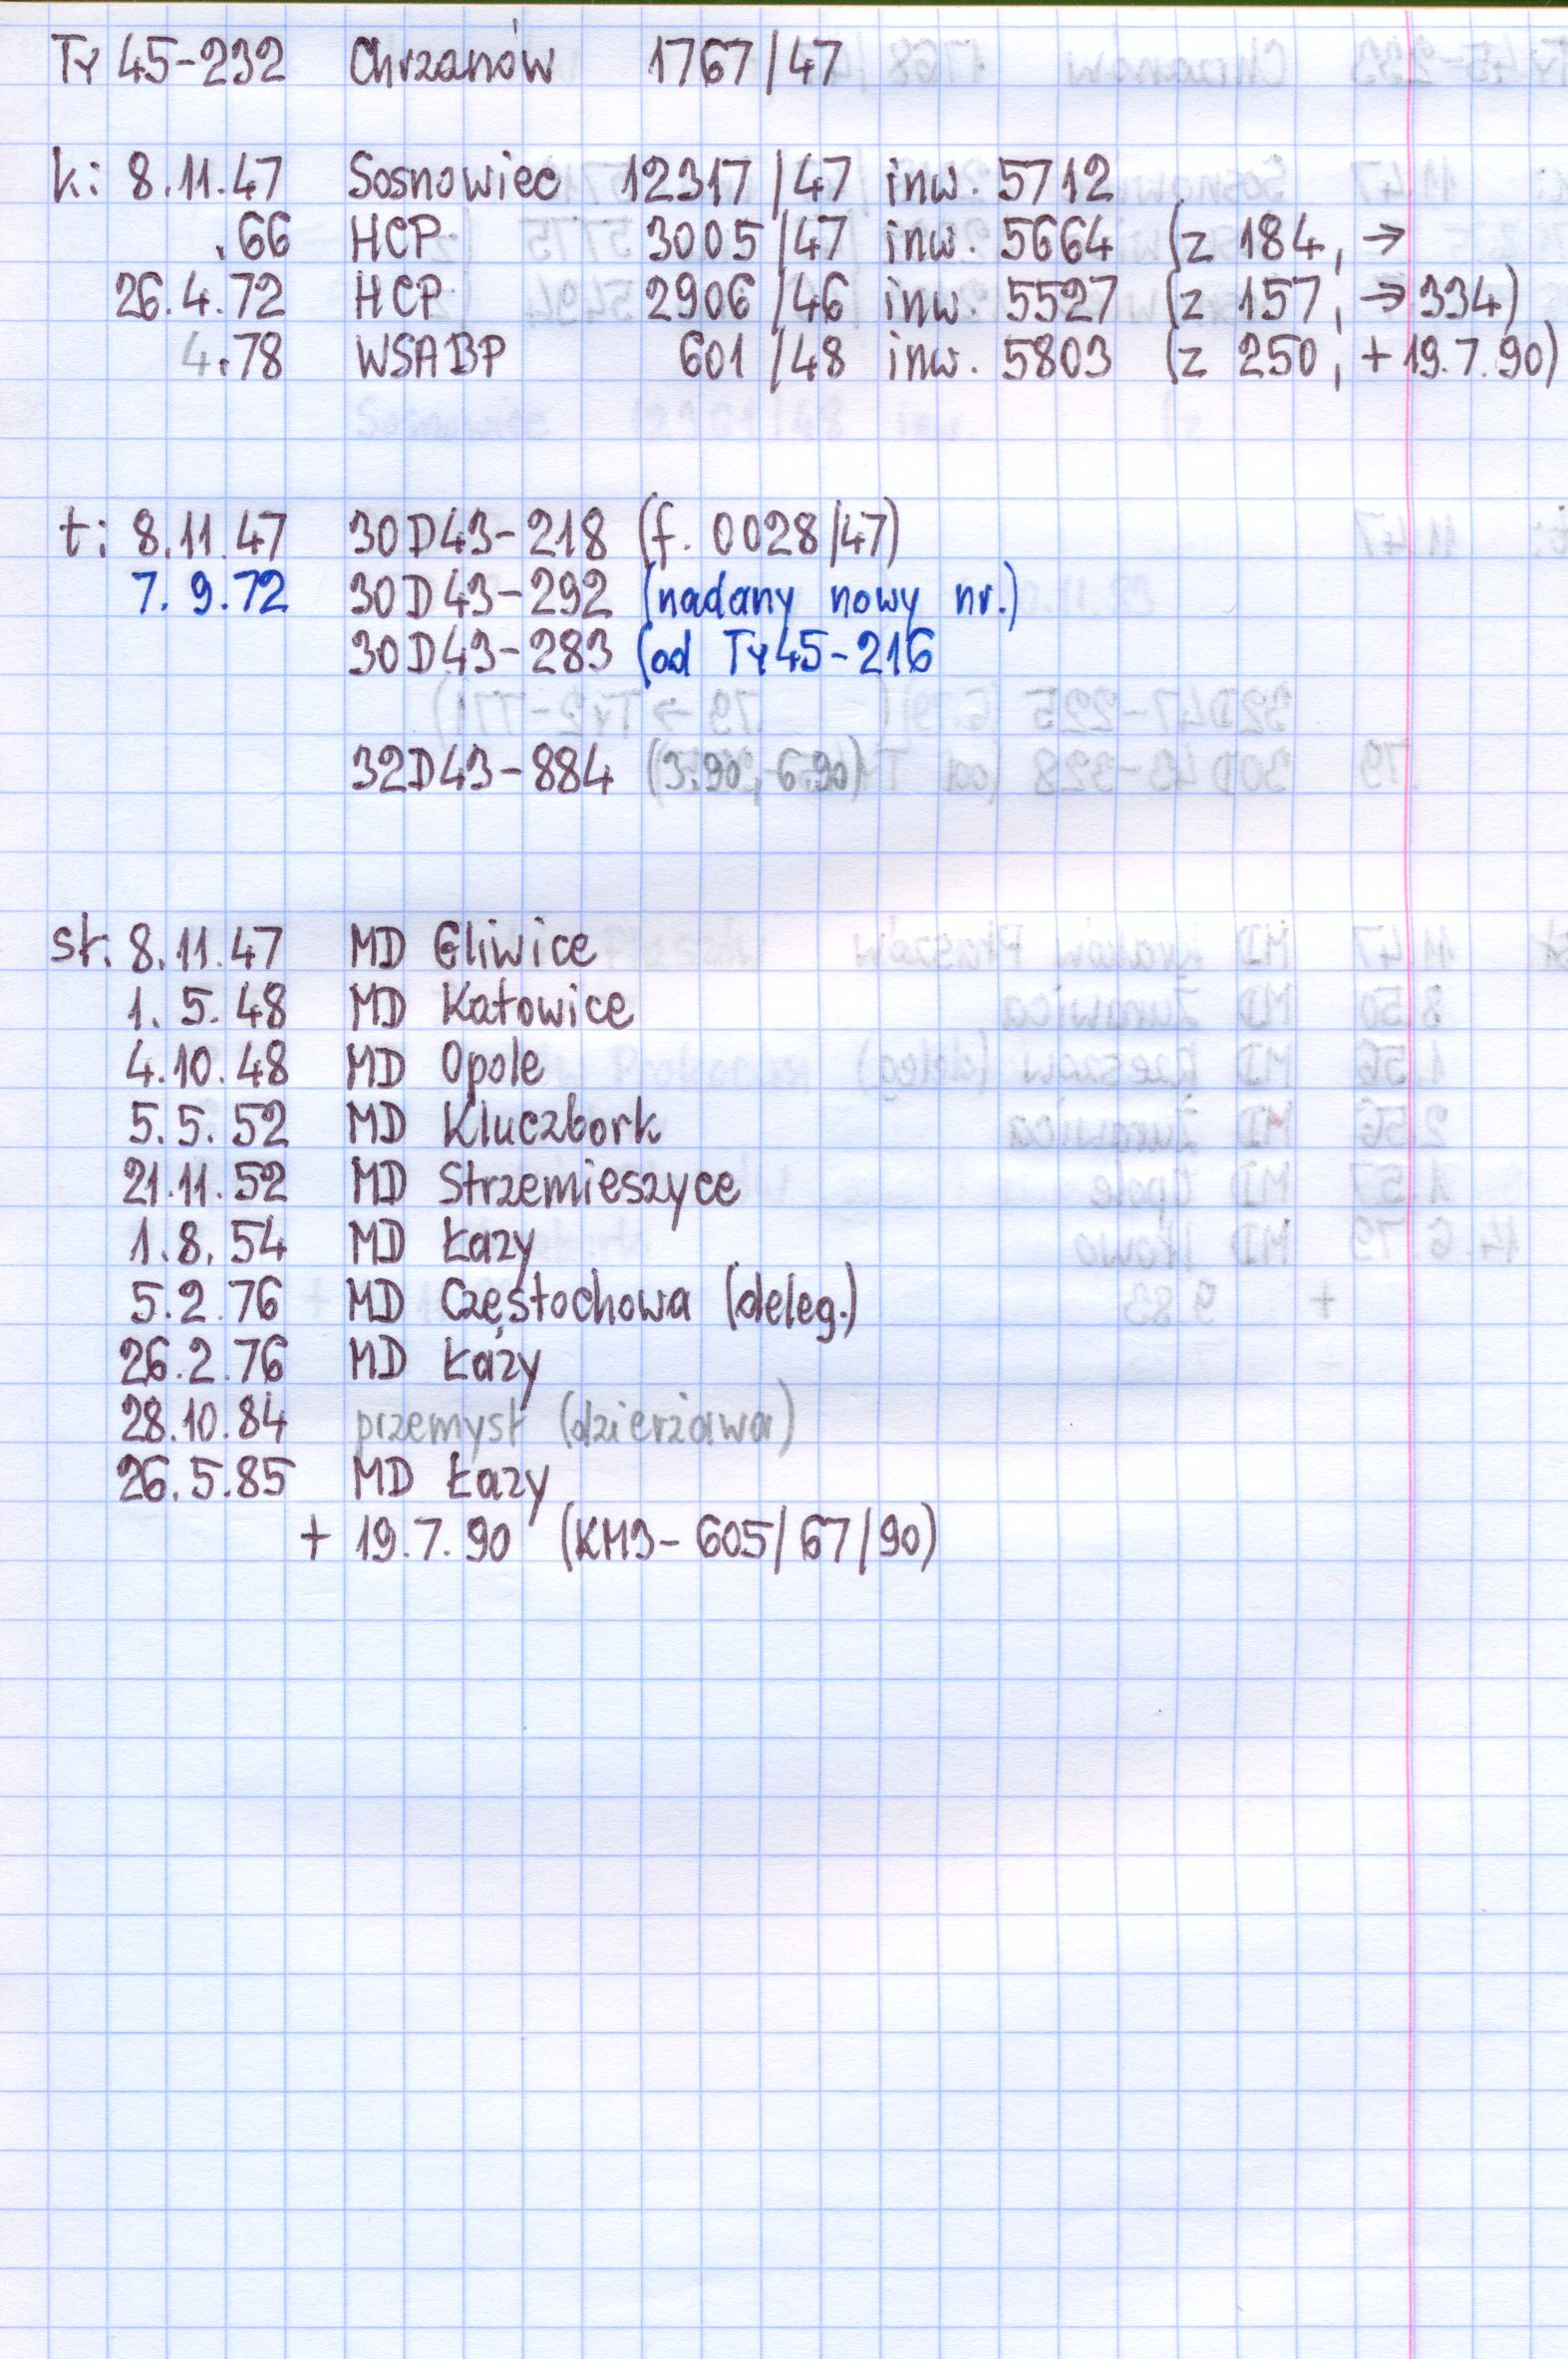 Ty 45-232 Chrzanów 1767/47
k: 8.11.47 Sosnowiec 12317/47 inw. 5712
.66 HCP 3005/47 inw. 5664 (z 184, →
26.4.72 HCP 2906/46 inw. 5527 (z 157, → 334)
4.78 WSABP 601/48 inw. 5803 (z 250, + 19.7.90)
t: 8.11.47 30D43-218 (f. 0028/47)
7.9.72 30D43-292 (nadany nowy nr.)
30D43-283 (od Ty45-216
32D43-884 (3.90, 6.90)
st: 8.11.47 MD Gliwice
1.5.48 MD Katowice
4.10.48 MD Opole
5.5.52 MD Kluczbork
21.11.52 MD Strzemieszyce
1.8.54 MD Łazy
5.2.76 MD Częstochowa (deleg.)
26.2.76 MD Łazy
28.10.84 przemysł (dzierżawa)
26.5.85 MD Łazy
+ 19.7.90 (KM3-605/67/90)